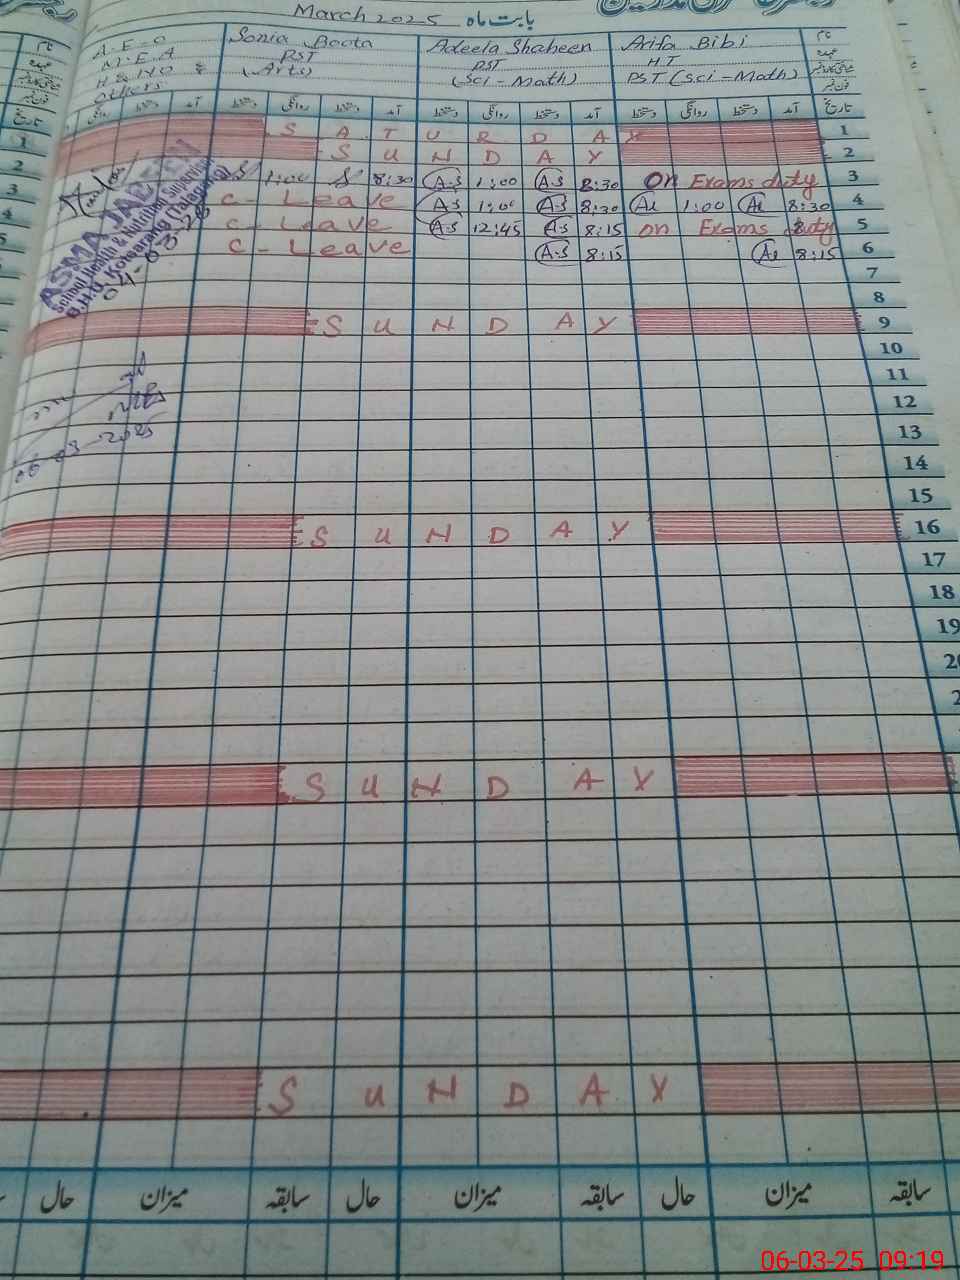 March 2025 بابت ماہ
A.E.O Sonia Boota Adeela Shaheen Arifa Bibi نام
M.E.A PST PST H.T عہدہ
H & NO & (Arts) (Sci-Math) PST (Sci-Math)
others
روانگی دستخط آمد دستخط روانگی دستخط آمد دستخط روانگی دستخط آمد دستخط روانگی دستخط آمد تاریخ
SATURDAY 1
SUNDAY 2
S 1:00 S 8:30 A.S 1:00 A.S 8:30 On Exams duty 3
C-Leave A.S 1:00 A.S 8:30 1:00 8:30 4
C-Leave A.S 12:45 A.S 8:15 on Exams duty 5
C-Leave A.S 8:15 8:15 6
7
8
SUNDAY 9
10
11
12
13
14
15
SUNDAY 16
17
18
19
SUNDAY
SUNDAY
ASMA JABEEN
School Health & Nutrition Supervisor
04-03-25
06-03-2025
حال میزان سابقہ حال میزان سابقہ حال میزان سابقہ
06-03-25 09:19